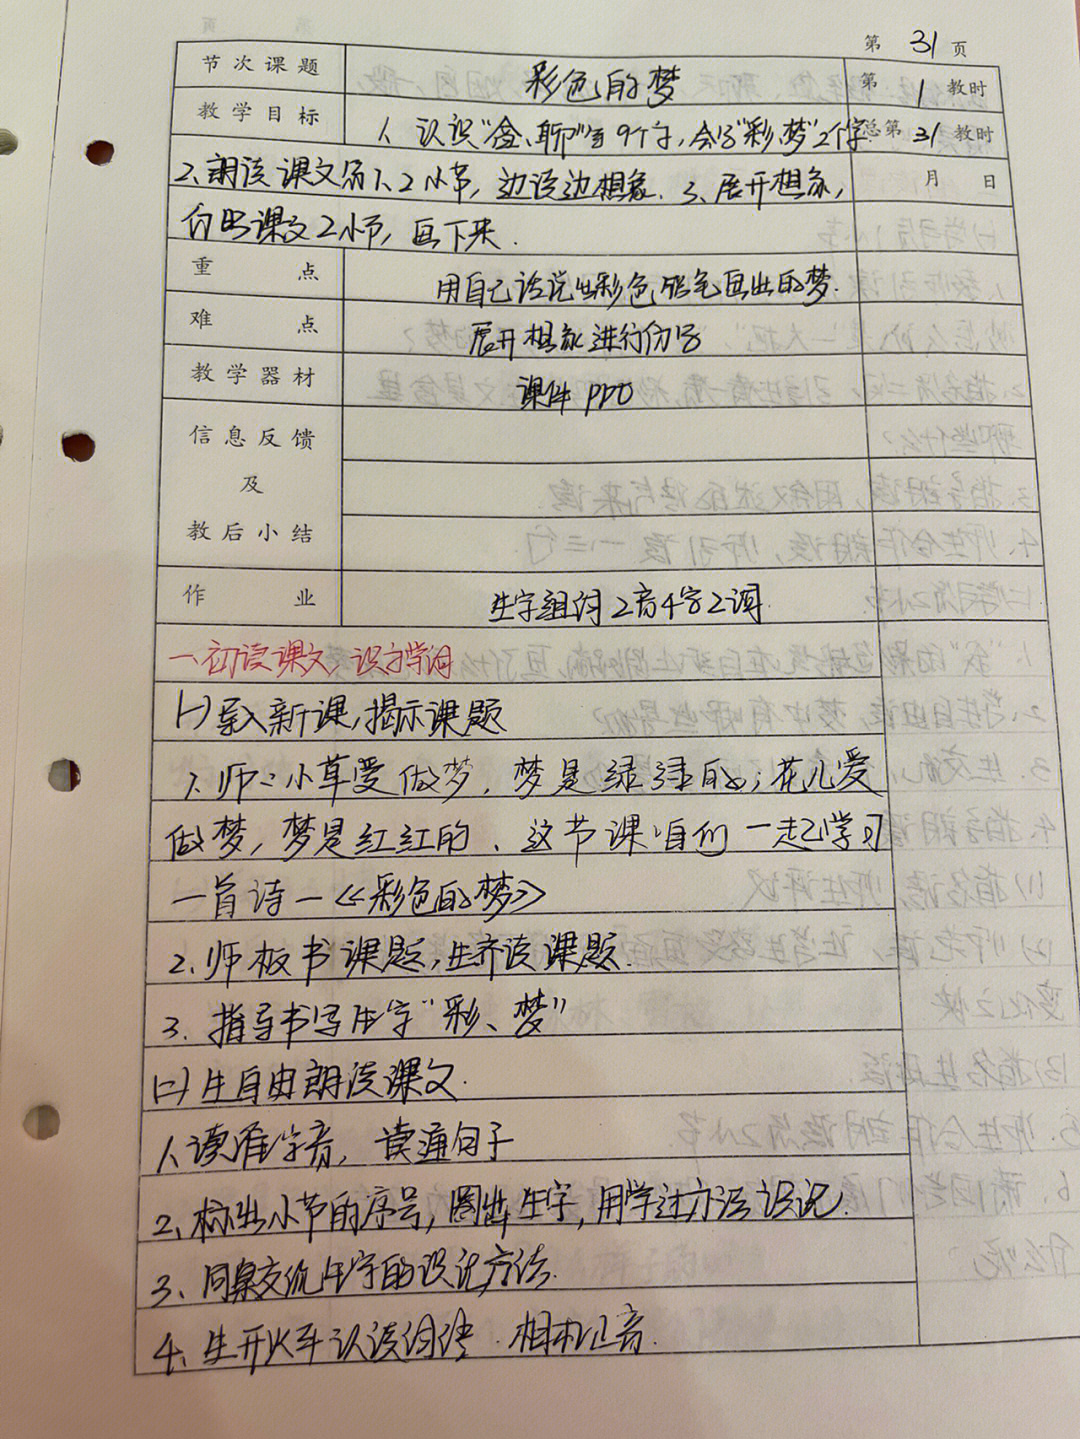 第 31 页
节次课题 彩色的梦 第 1 教时
教学目标 1、认识“盒、聊”等9个字,会写“彩、梦”2个字. 总第 31 教时
2、朗读课文第1、2小节,边读边想象. 3、展开想象, 月 日
仿照课文2小节,画下来.
重点 用自己话说出彩色铅笔画出的梦.
难点 展开想象进行仿写
教学器材 课件 PPT
信息反馈
及
教后小结
作业 生字组词2音4字2词
一、初读课文,识字学词
(一)导入新课,揭示课题
1、师:小草爱做梦,梦是绿绿的;花儿爱
做梦,梦是红红的、这节课咱们一起学习
一首诗—《彩色的梦》
2、师板书课题,生齐读课题.
3、指导书写生字“彩、梦”
(二)生自由朗读课文.
1、读准字音,读通句子
2、标出小节的序号,圈出生字,用学过方法识记.
3、同桌交流生字的识记方法.
4、生开火车认读词语.相机正音.